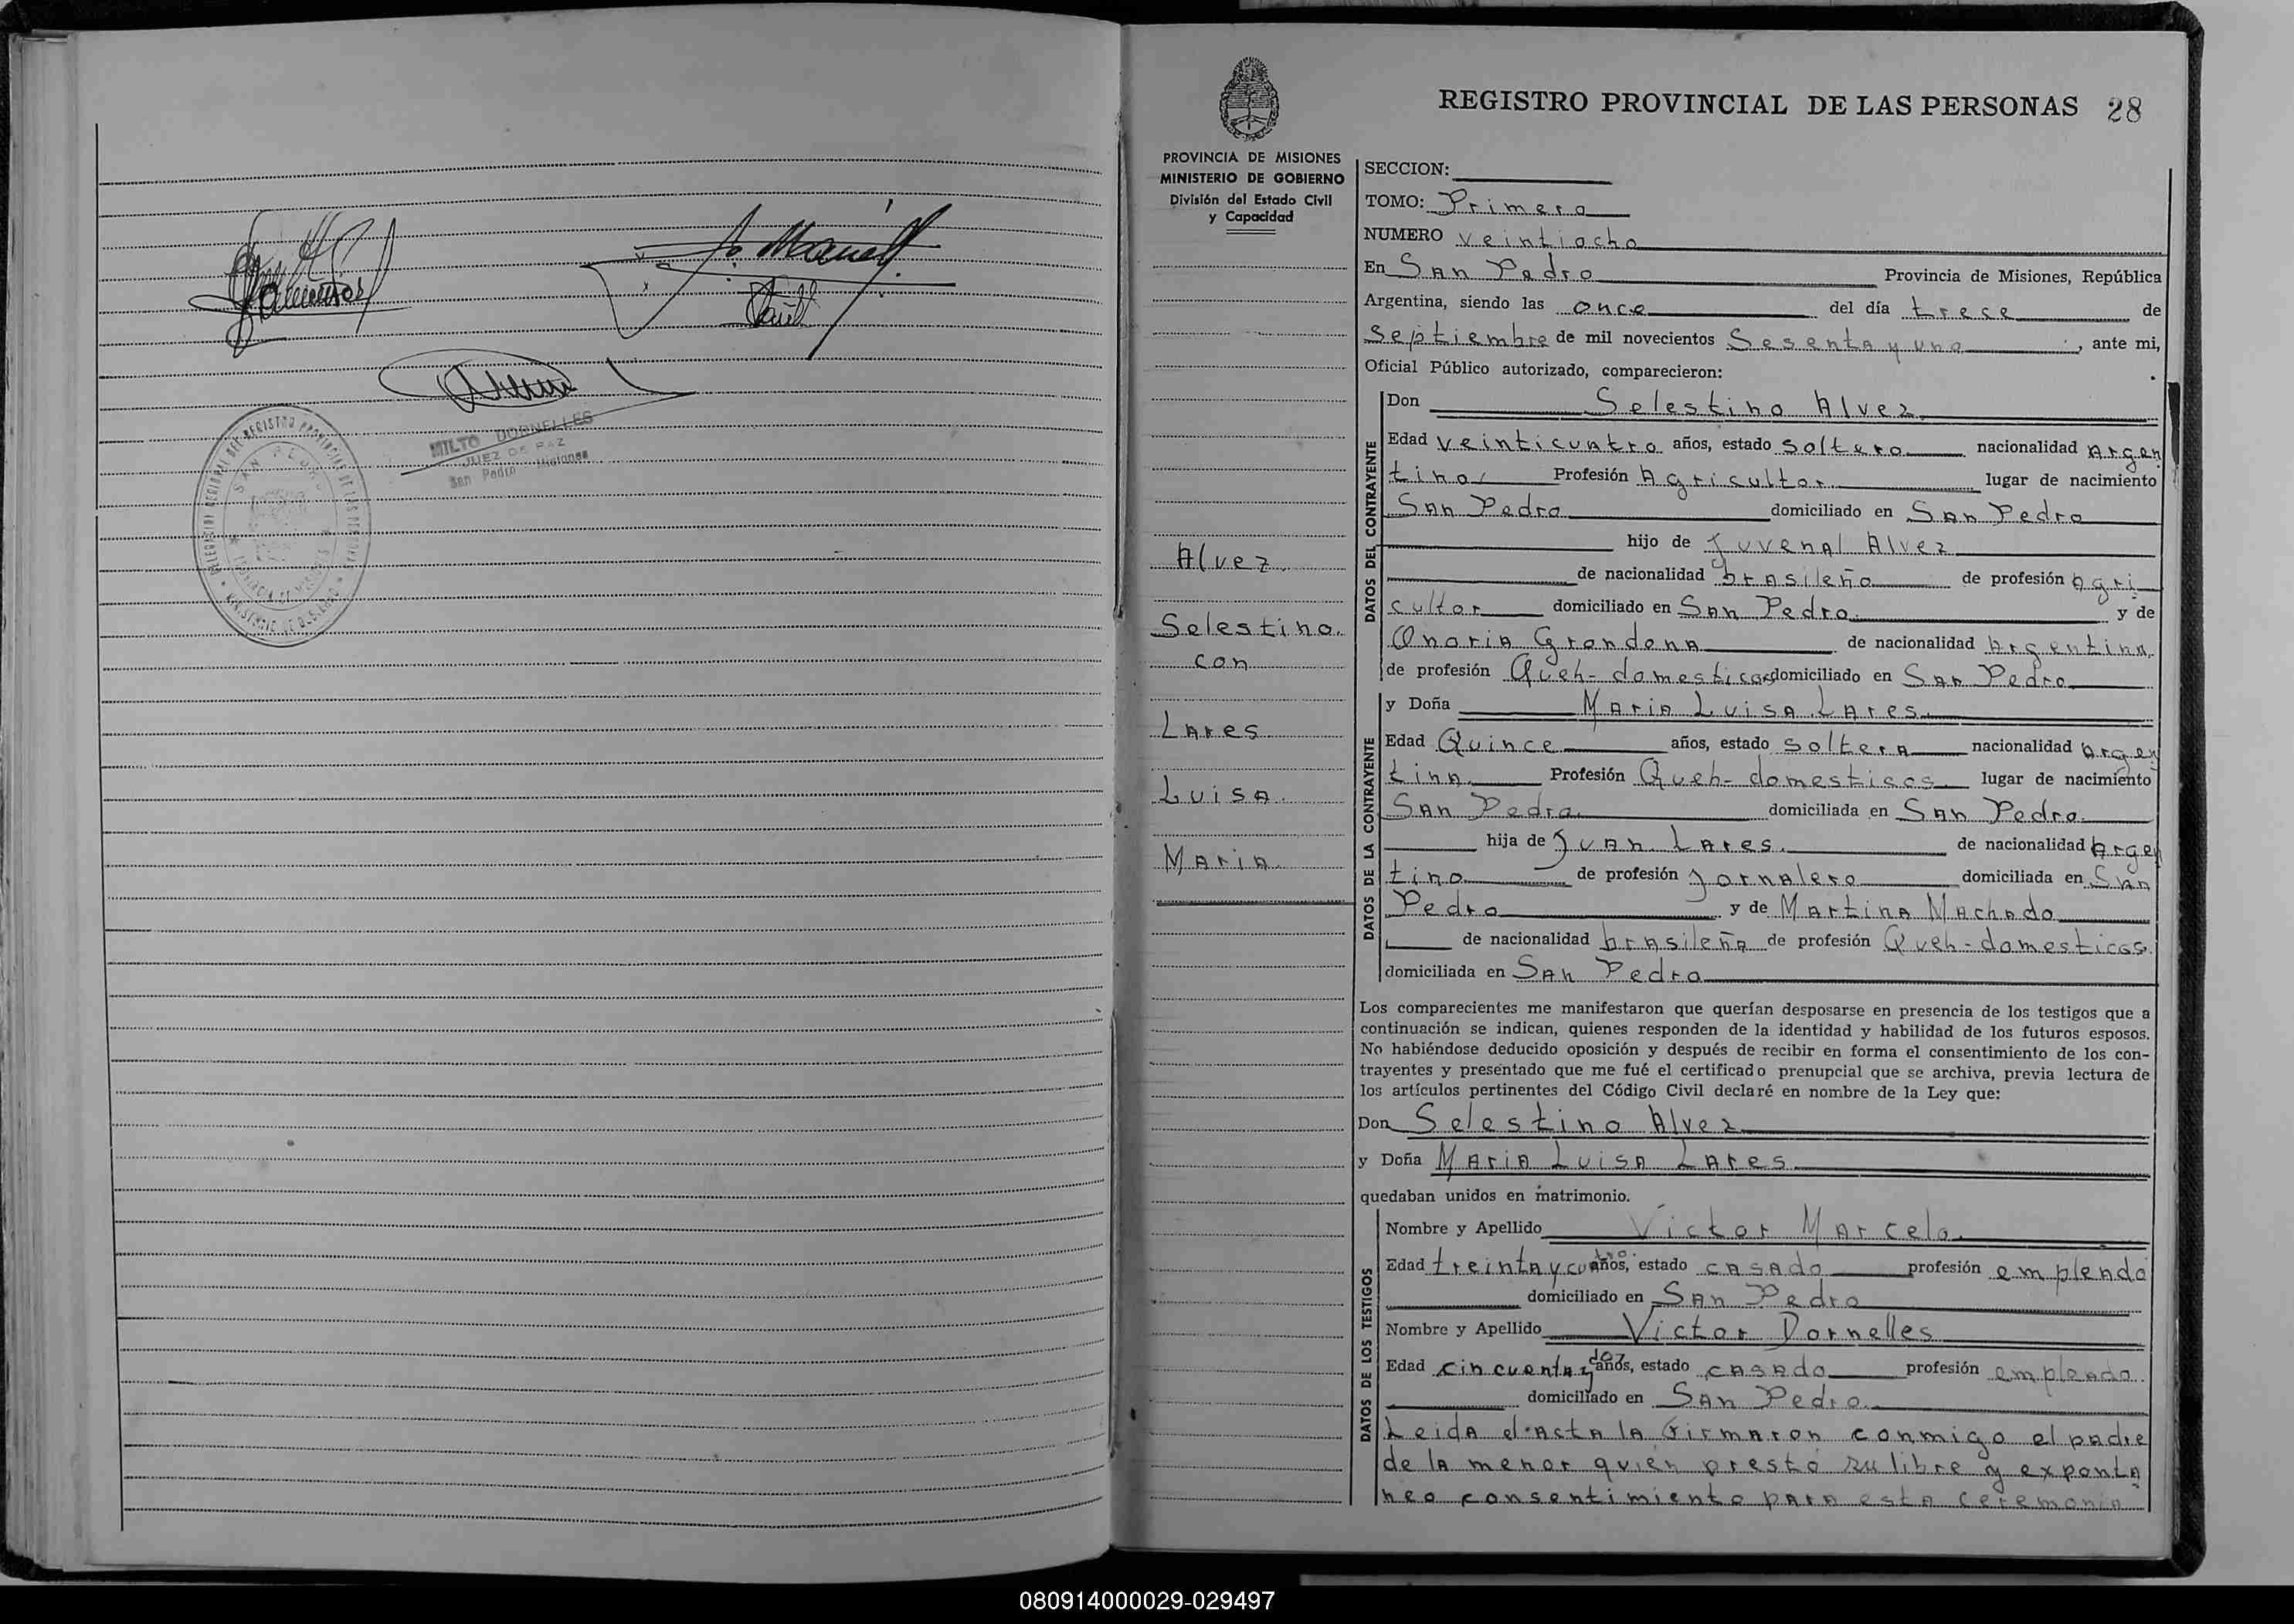 MILTO DORNELLES
JUEZ DE PAZ
San Pedro Misiones
REGISTRO PROVINCIAL DE LAS PERSONAS 28
PROVINCIA DE MISIONES
MINISTERIO DE GOBIERNO
División del Estado Civil
y Capacidad
Alvez
Selestino.
con
Lares
Luisa.
Maria.
SECCION:
TOMO: Primero
NUMERO veintiocho
En San Pedro Provincia de Misiones, República
Argentina, siendo las once del día trece de
Septiembre de mil novecientos Sesenta y uno, ante mi,
Oficial Público autorizado, comparecieron:
DATOS DEL CONTRAYENTE
Don Selestino Alvez
Edad veinticuatro años, estado soltero nacionalidad Argen
tino Profesión Agricultor lugar de nacimiento
San Pedro domiciliado en San Pedro
hijo de Juvenal Alvez
de nacionalidad brasileño de profesión Agri
cultor domiciliado en San Pedro y de
Onoria Grondona de nacionalidad Argentina
de profesión Queh-domesticos domiciliado en San Pedro
DATOS DE LA CONTRAYENTE
y Doña Maria Luisa Lares
Edad Quince años, estado soltera nacionalidad Argen
tina Profesión Queh-domesticos lugar de nacimiento
San Pedro domiciliada en San Pedro
hija de Juan Lares. de nacionalidad Argen
tino de profesión Jornalero domiciliada en San
Pedro y de Martina Machado
de nacionalidad brasileña de profesión Queh-domesticos
domiciliada en San Pedro
Los comparecientes me manifestaron que querían desposarse en presencia de los testigos que a
continuación se indican, quienes responden de la identidad y habilidad de los futuros esposos.
No habiéndose deducido oposición y después de recibir en forma el consentimiento de los con-
trayentes y presentado que me fué el certificado prenupcial que se archiva, previa lectura de
los artículos pertinentes del Código Civil declaré en nombre de la Ley que:
Don Selestino Alvez
y Doña Maria Luisa Lares
quedaban unidos en matrimonio.
DATOS DE LOS TESTIGOS
Nombre y Apellido Victor Marcelo
Edad treinta y cuatro años, estado casado profesión empleado
domiciliado en San Pedro
Nombre y Apellido Victor Dornelles
Edad cincuenta y dos años, estado casado profesión empleado
domiciliado en San Pedro
Leida el acta la firmaron conmigo el padre
de la menor quien prestó su libre y exponta
neo consentimiento para esta ceremonia
080914000029-029497